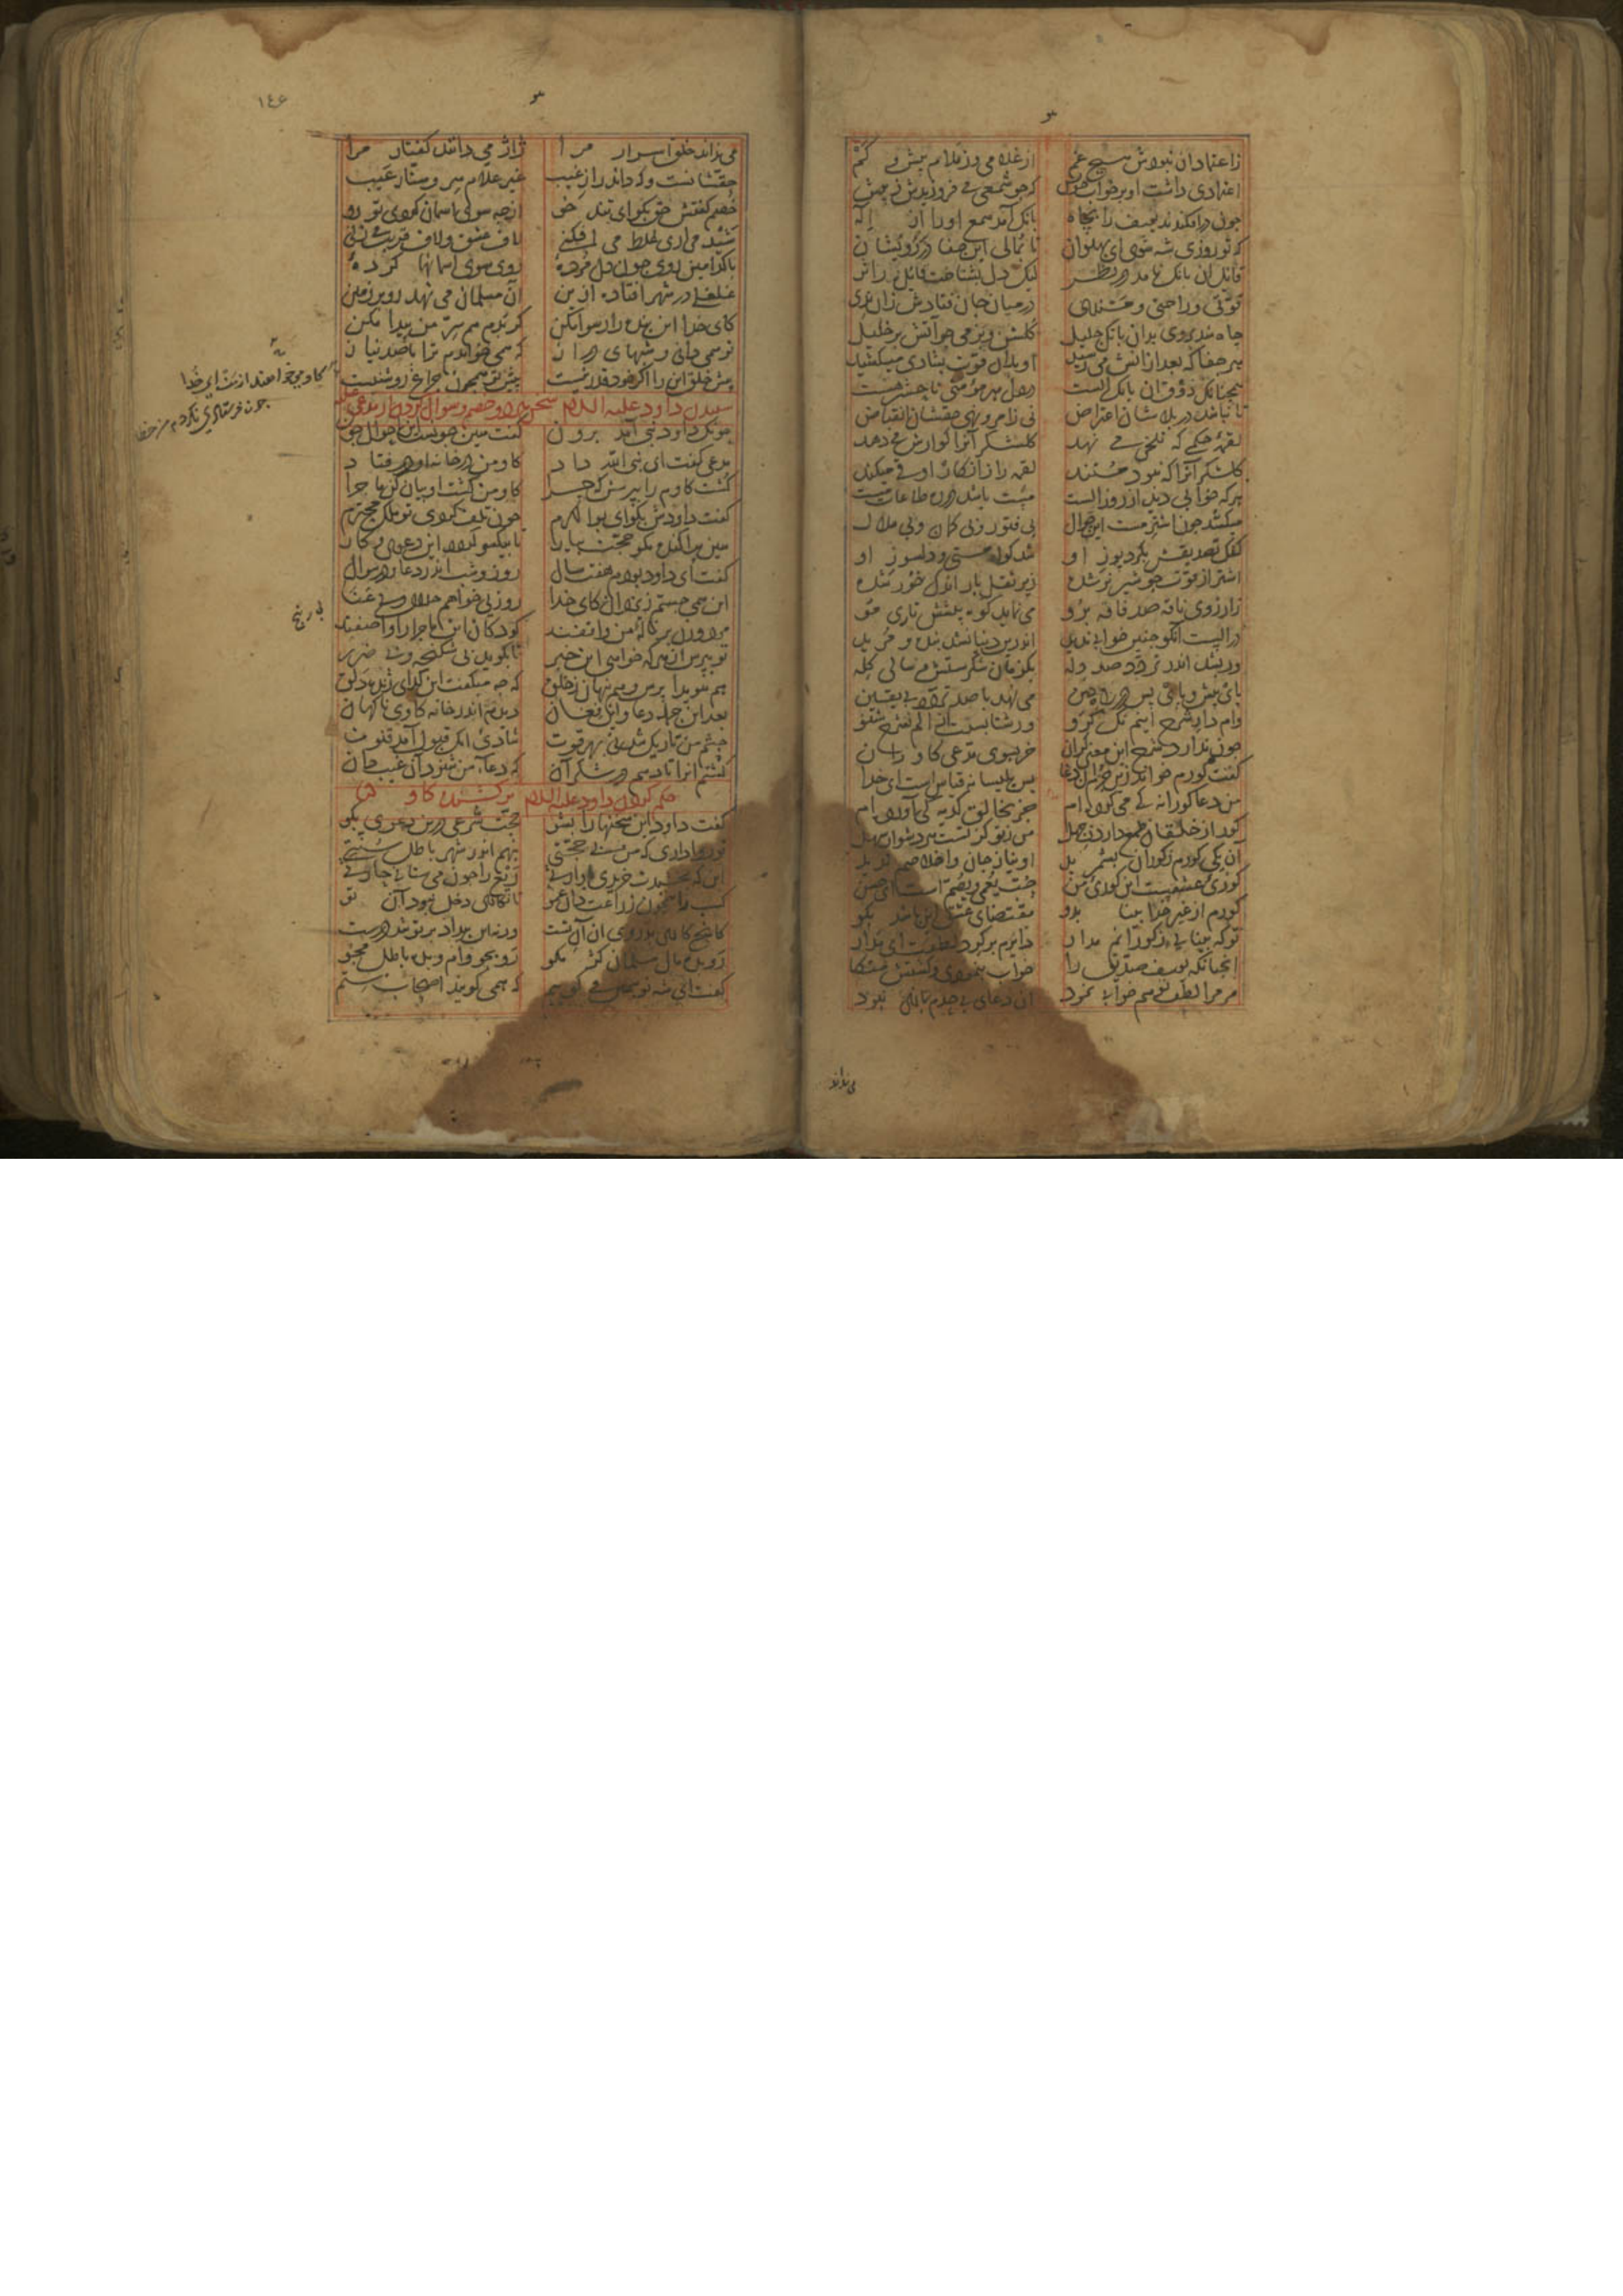 ۳
زاعتماد آن نبودش هیچ غم از غلامی وز ملام بیش و کم
اعتمادی داشت او بر خواب خویش که چو شمعی می فروزیدش ز پیش
چون درافکندند یوسف را بچاه بانک آمد سمع او را از اله
که تو روزی شه شوی ای پهلوان تا بمالی این جفا در رویشان
قایل آن بانک ناید در نظر لیک دل بشناخت قایل را ز اثر
قوتی و راحتی و مسندی در میان جان فتادش زان ندی
چاه شد بروی بدان بانک جلیل کلشن و بزمی چو آتش بر خلیل
هر جفا که بعد ازانش می رسید او بدان قوت بشادی میکشید
همچنانک ذوق آن بانک الست در دل هر مؤمنی تا حشر هست
تا نباشد در بلاشان اعتراض نی ز امر و نهی حقشان انقباض
لقمهٔ حکمی که تلخی می نهد کلشکر آنرا کوارش می دهد
کلشکر آنرا که نبود مستند لقمه را ز انکار او قی میکند
هرکه خوابی دید از روز الست مست باشد در ره طاعات مست
میکشد چون اشتر مست این جوال بی فتور و بی کمان و بی ملال
کفک تصدیقش بکرد پوز او شد کواه مستی و دلسوز او
اشتر از قوت چو شیر نر شده زیر ثقل بار اندک خور شده
زارزوی ناقه صد فاقه برو می نماید کوه پیشش تاری مو
در الست آنکو چنین خوابی ندید اندرین دنیا نشد بنده و مرید
ور بشد اندر تردد صد دله یکزمان شکرستش و سالی کله
پای پیش و پای پس در راه دین می نهد با صد تردد بی یقین
وام دار شرح اینم نک کرو ور شتابستت ز الم نشرح شنو
چون ندارد شرح این معنی کران خر بسوی مدعی کاو ران
کفت کورم خواند زین جرم آن دغا بس بلیسانه قیاس است ای خدا
من دعا کورانه کی می کرده ام جز بخالق کدیه کی آورده ام
کور از خلقان طمع دارد ز جهل من ز تو کز تست هر دشوار سهل
آن یکی کورم ز کوران بشمرید او نیاز جان و اخلاصم ندید
کوری عشقست این کوری من حب یعمی و یصم است ای حسن
کورم از غیر خدا بینا بدو مقتضای عشق این باشد بکو
تو که بینایی ز کورانم مدار دایرم برکرد لطفت ای مدار
آنچنانکه یوسف صدیق را خواب بنمودی و کشتش متکا
مر مرا لطف تو هم خوابی نمود آن دعای بی حدم بازی نبود
می نداند
۱٤۶
۳
می نداند خلق اسرار مرا ژاژ می دانند کفتار مرا
حقشانست و که داند راز غیب غیر علام سر و ستار عیب
خصم کفتش حق بکو ای تند خو از چه سوی آسمان کردی تو رو
شید می آری غلط می افکنی لاف عشق و لاف قربت می زنی
با کدامین روی چون دل مردهٔ روی سوی آسمانها کردهٔ
غلغلی در شهر افتاده ازین آن مسلمان می نهد رو بر زمین
کای خدا این بنده را رسوا مکن کر بدم هم سر من پیدا مکن
تو همی دانی و شبهای دراز که همی خواندم ترا با صد نیاز
پیش خلق این را اکر خود قدر نیست پیش تو همچون چراغ روشنیست
کاو می خواهند از من ای خدا
چون فرستادی نکردم من خطا
شنیدن داود علیه السلام سخن هر دو خصم و سوال کردن از مدعی علیه
چونک داود نبی آمد برون کفت هین چونست این احوال چون
مدعی کفت ای نبی الله داد کاو من در خانهٔ او درفتاد
کشت کاوم را بپرسش که چرا کاو من کشت او بیان کن ماجرا
کفت داودش بکو ای بوالکرم چون تلف کردی تو ملک محترم
هین پراکنده مکو حجت بیار تا بیکسو کردد این دعوی و کار
کفت ای داود بودم هفت سال روز و شب اندر دعا و در سوال
این همی جستم ز یزدان کای خدا روزیی خواهم حلال و بی عنا
بی رنج
مرد و زن بر نالهٔ من واقفند کودکان این ماجرا را واصفند
تو بپرس از هر که خواهی این خبر تا بکوید بی شکنجه و بی ضرر
هم هویدا پرس و هم پنهان ز خلق که چه میکفت این کدای ژنده دلق
بعد این جمله دعا و این فغان دیدم اندر خانه کاوی ناکهان
چشم من تاریک شد نی بهر قوت شادی آنک قبول آمد قنوت
کشتم آنرا تا دهم در شکر آن که دعاء من شنود آن غیب دان
حکم کردن داود علیه السلام بر کشنده کاو
کفت داود این سخنها را بشو حجت شرعی درین دعوی بکو
تو روا داری که من بی حجتی بنهم اندر شهر باطل سنتی
این که بخشیدت خریدی وارثی ریع را چون می ستانی حارثی
کسب را همچون زراعت دان عمو تا نکاری دخل نبود آن تو
کانچ کاری بدروی آن آن تست ورنه این بیداد بر تو شد درست
رو بده مال مسلمان کژ مکو رو بجو وام و بده باطل مجو
کفت ای شه تو همین می کوییم که همی کویند اصحاب ستم